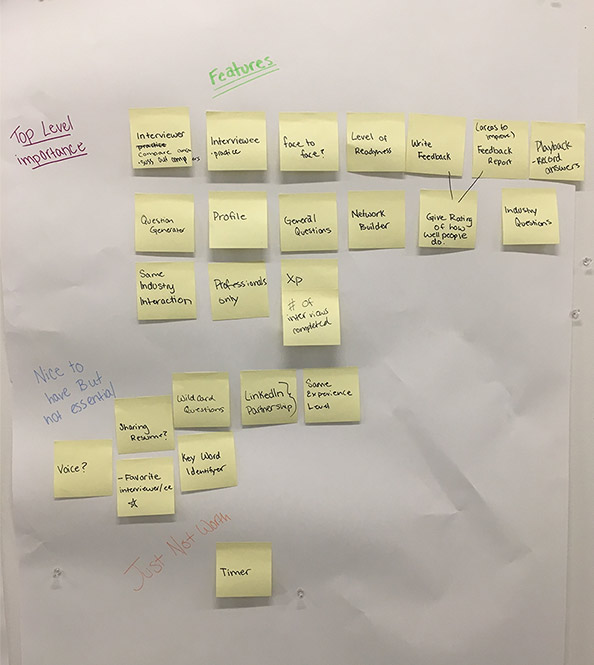 Features
Top Level
importance
Interviewer
practice
compare answers
Interviewee
-practice
face to
face?
Level of
Readyness
Write
Feedback
(areas to
improve)
Feedback
Report
Playback
-Record
answers
Question
Generator
Profile
General
Questions
Network
Builder
Give Rating
of how
well people
do.
Industry
Questions
Same
Industry
Interaction
Professionals
only
Xp
# of
interviews
completed
Nice to
have But
not essential
Wild Card
Questions
LinkedIn
Partnership
Same
Experience
Level
Sharing
Resume?
Voice?
-Favorite
interviewer/ee
Key Word
Identifyer
Just Not Worth
Timer